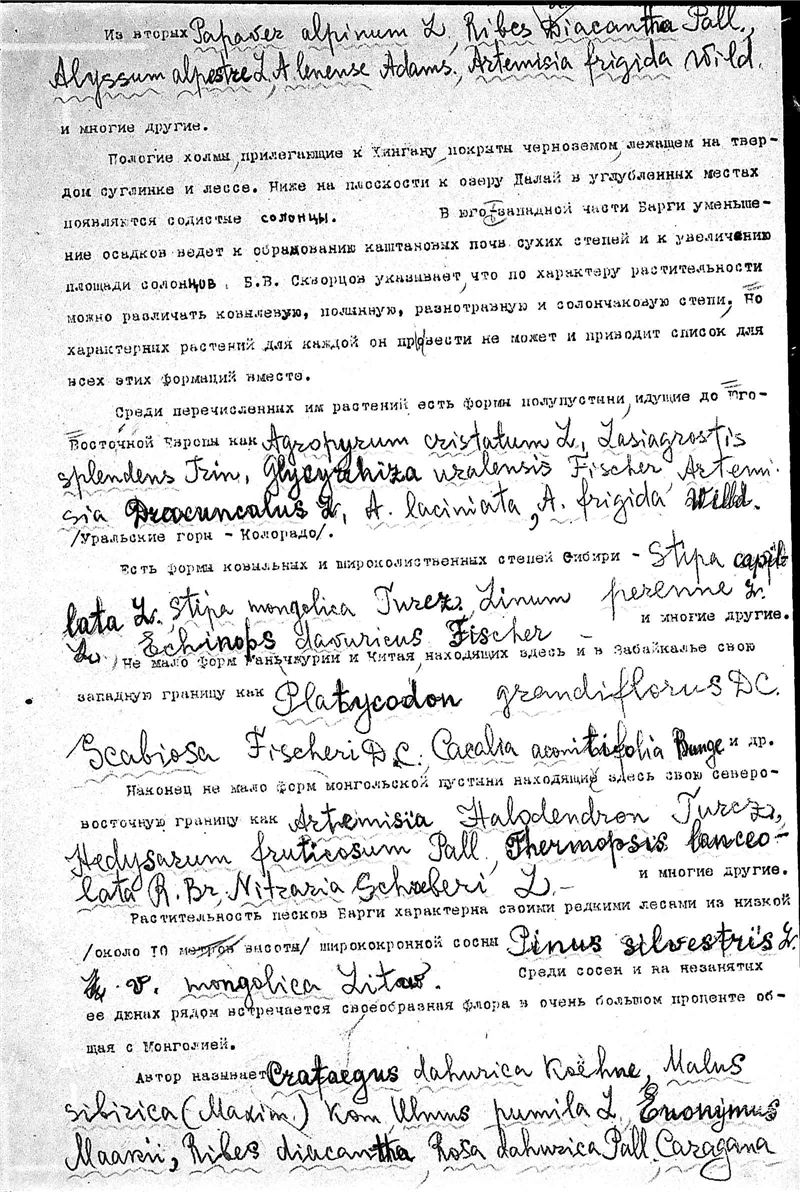 Из вторых Papaver alpinum L, Ribes Diacantha Pall.,
Alyssum alpestre L, A. lenense Adams., Artemisia frigida Wild.
и многие другие.
Пологие холмы, прилегающие к Хингану, покрыты черноземом, лежащем на твер-
дом суглинке и лессе. Ниже на плоскости к озеру Далай в углубленных местах
появляются содистые солонцы. В юго-западной части Барги уменьше-
ние осадков ведет к образованию каштановых почв сухих степей и к увеличению
площади солонцов. Б.В. Скворцов указывает, что по характеру растительности
можно различать ковылевую, полынную, разнотравную и солончаковую степи. Но
характерных растений для каждой он провести не может и приводит список для
всех этих формаций вместе.
Среди перечисленных им растений есть формы полупустыни, идущие до Юго-
Восточной Европы как Agropyrum cristatum L, Lasiagrostis
splendens Trin, Glycyrhiza uralensis Fischer, Artemi-
sia Dracunculus L, A. laciniata, A. frigida Willd.
/Уральские горы - Колорадо/.
Есть формы ковыльных и широколиственных степей Сибири - Stipa capil-
lata L. Stipa mongolica Turcz. Linum perenne L.
L. Echinops davuricus Fischer - и многие другие.
Не мало форм Маньчжурии и Китая, находящих здесь и в Забайкалье свою
западную границу как Platycodon grandiflorus D.C.
Scabiosa Fischeri D.C. Cacalia aconitifolia Bunge и др.
Наконец не мало форм монгольской пустыни находящие здесь свою северо-
восточную границу как Artemisia Halodendron Turcz.,
Hedysarum fruticosum Pall, Thermopsis lanceo-
lata R.Br, Nitraria Schoberi L - и многие другие.
Растительность песков Барги характерна своими редкими лесами из низкой
/около 10 метров высоты/ ширококронной сосны Pinus silvestris L.
L. v. mongolica Litw. Среди сосен и на незанятых
ее дюнах рядом встречается своеобразная флора в очень большом проценте об-
щая с Монголией.
Автор называет Crataegus dahurica Koëhne, Malus
sibirica (Maxim.) Kom, Ulmus pumila L, Euonymus
Maakii, Ribes diacantha, Rosa dahurica Pall. Caragana